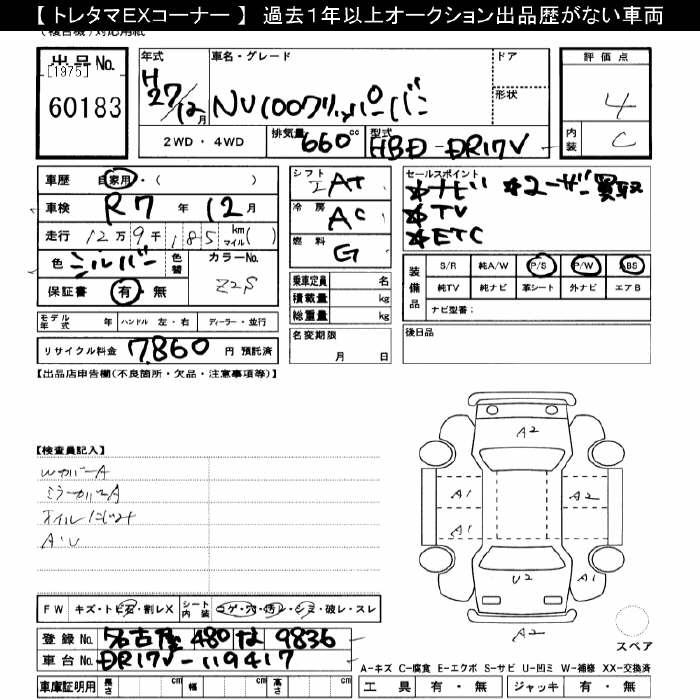 【 トレタマEXコーナー 】 過去1年以上オークション出品歴がない車両
(複合機)対応用紙
出品No.
[1975]
60183
年式
H
27/12月
車名・グレード
NV100クリッパーバン
ドア
形状
2WD・4WD
排気量 660cc
型式 HBD-DR17V
評価点
4
内装 C
車歴 自家用・( )
車検 R7年12月
走行 12万9千185 km マイル( )
色 シルバー
色替
カラーNo.
Z2S
保証書 有・無
シフト AT
冷房 AC
燃料 G
乗車定員 名
積載量 kg
総重量 kg
セールスポイント
*ナビ *ユーザー買取
*TV
*ETC
装備品
S/R 純A/W P/S P/W ABS
純TV 純ナビ 革シート 外ナビ エアB
ナビ型番:
モデル年式 年 ハンドル 左・右 ディーラー・並行
リサイクル料金 7,860 円 預託済
名変期限
月 日
後日品
【出品店申告欄(不良箇所・欠品・注意事項等)】
【検査員記入】
WカバーA
ミラーカバーA
オイルにじみ
A・U
A2
A1
A2
A1
U2
A1
A2
スペア
FW キズ・トビ石・割レX
シート内装 コゲ・穴・汚レ・シミ・破レ・スレ
登録No. 名古屋 480 な 9836
車台No. DR17V-119417
A-キズ C-腐食 E-エクボ S-サビ U-凹ミ W-補修 XX-交換済
車庫証明用 長さ cm 幅 cm 高さ cm
工具 有・無 ジャッキ 有・無